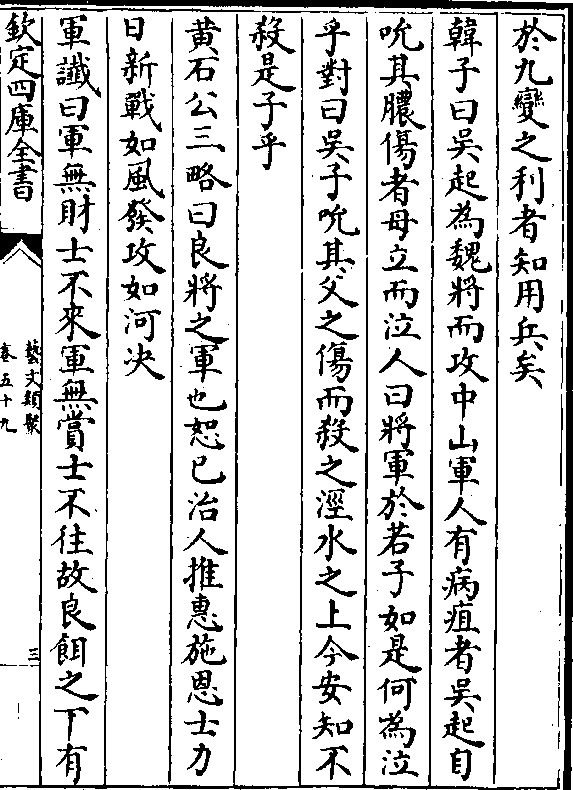 於九變之利者知用兵矣
韓子曰吳起為魏將而攻中山軍人有病疽者吳起自
吮其膿傷者母立而泣人曰將軍於若子如是何為泣
乎對曰吳子吮其父之傷而殺之涇水之上今安知不
殺是子乎
黄石公三略曰良將之軍也恕已治人推惠施恩士力
日新戰如風發攻如河决
軍讖曰軍無財士不來軍無賞士不往故良餌之下有
欽定四庫全書
藝文類聚
卷五十九
三